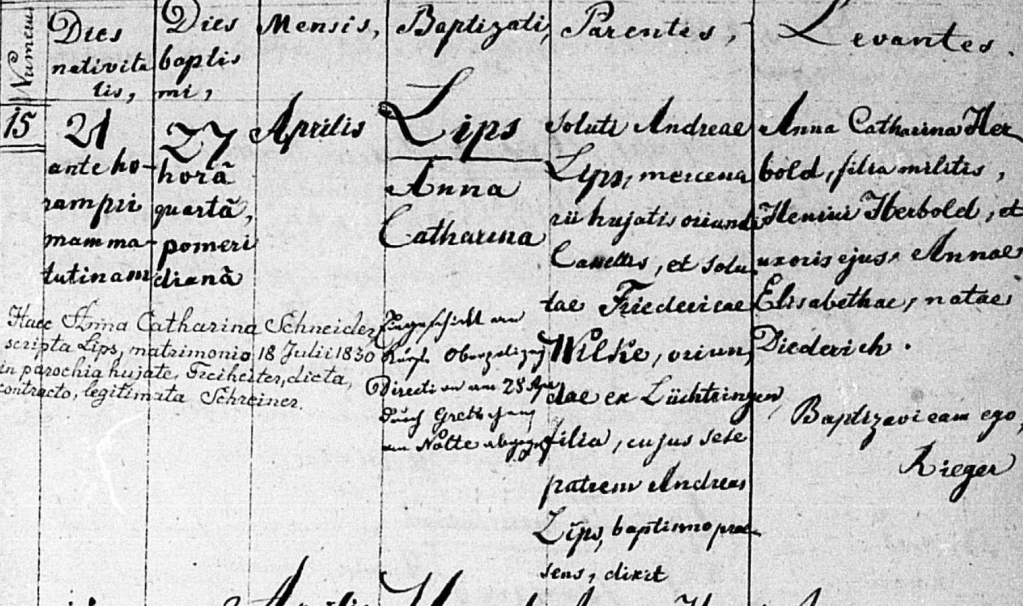 Numerus
Dies
nativita
tis,
Dies
baptis
mi,
Mensis,
Baptizati,
Parentes,
Levantes.
15
21
ante ho-
ram pri
mam ma-
tutinam
27
horā
quartā,
pomeri
dianā
Aprilis
Lips
Anna
Catharina
soluti Andreae
Lips, mercena
rii hujatis oriundi
et solu
tae Friedericae
Wilke, oriun
dae ex Lüchtringen
filia, cujus sese
patrem Andreas
Lips, baptismo prae
sens, dixit
Anna Catharina Her
bold, filia militis,
Henrici Herbold, et
uxoris ejus Annae
Elisabethae, natae
Diederich.
Baptizavi eam ego,
Rieger
Haec Anna Catharina Schneider,
scripta Lips, matrimonio 18 Julii 1830
in parochia hujate, Freiheiter, dicta,
contracto, legitimata Schreiner.
Direction am 28
durch
Aprilis